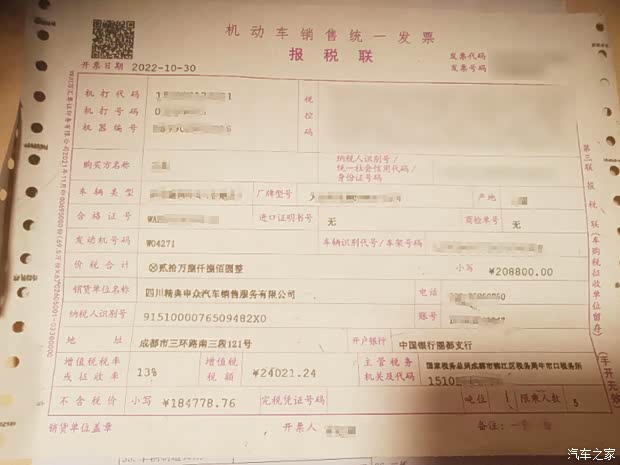 机动车销售统一发票
报税联
发票代码
发票号码
开票日期 2022-10-30
机打代码
机打号码
机器编号
税控码
购买方名称
纳税人识别号/统一社会信用代码/身份证号码
车辆类型 厂牌型号 产地
合格证号 WA 进口证明书号 无 商检单号 无
发动机号码 W04271 车辆识别代号/车架号码
价税合计 ⊗贰拾万捌仟捌佰圆整 小写 ¥208800.00
销货单位名称 四川精典申众汽车销售服务有限公司 电话
纳税人识别号 9151000076509482X0 账号
地址 成都市三环路南三段121号 开户银行 中国银行圈都支行
增值税税率或征收率 13% 增值税税额 ¥24021.24 主管税务机关及代码 国家税务总局成都市锦江区税务局牛市口税务所
1510
不含税价 小写 ¥184778.76 完税凭证号码 吨位 限乘人数 5
销货单位盖章 开票人 备注:一车一
第三联 报税联(车购税征收单位留存)
(手开无效)
汽车之家